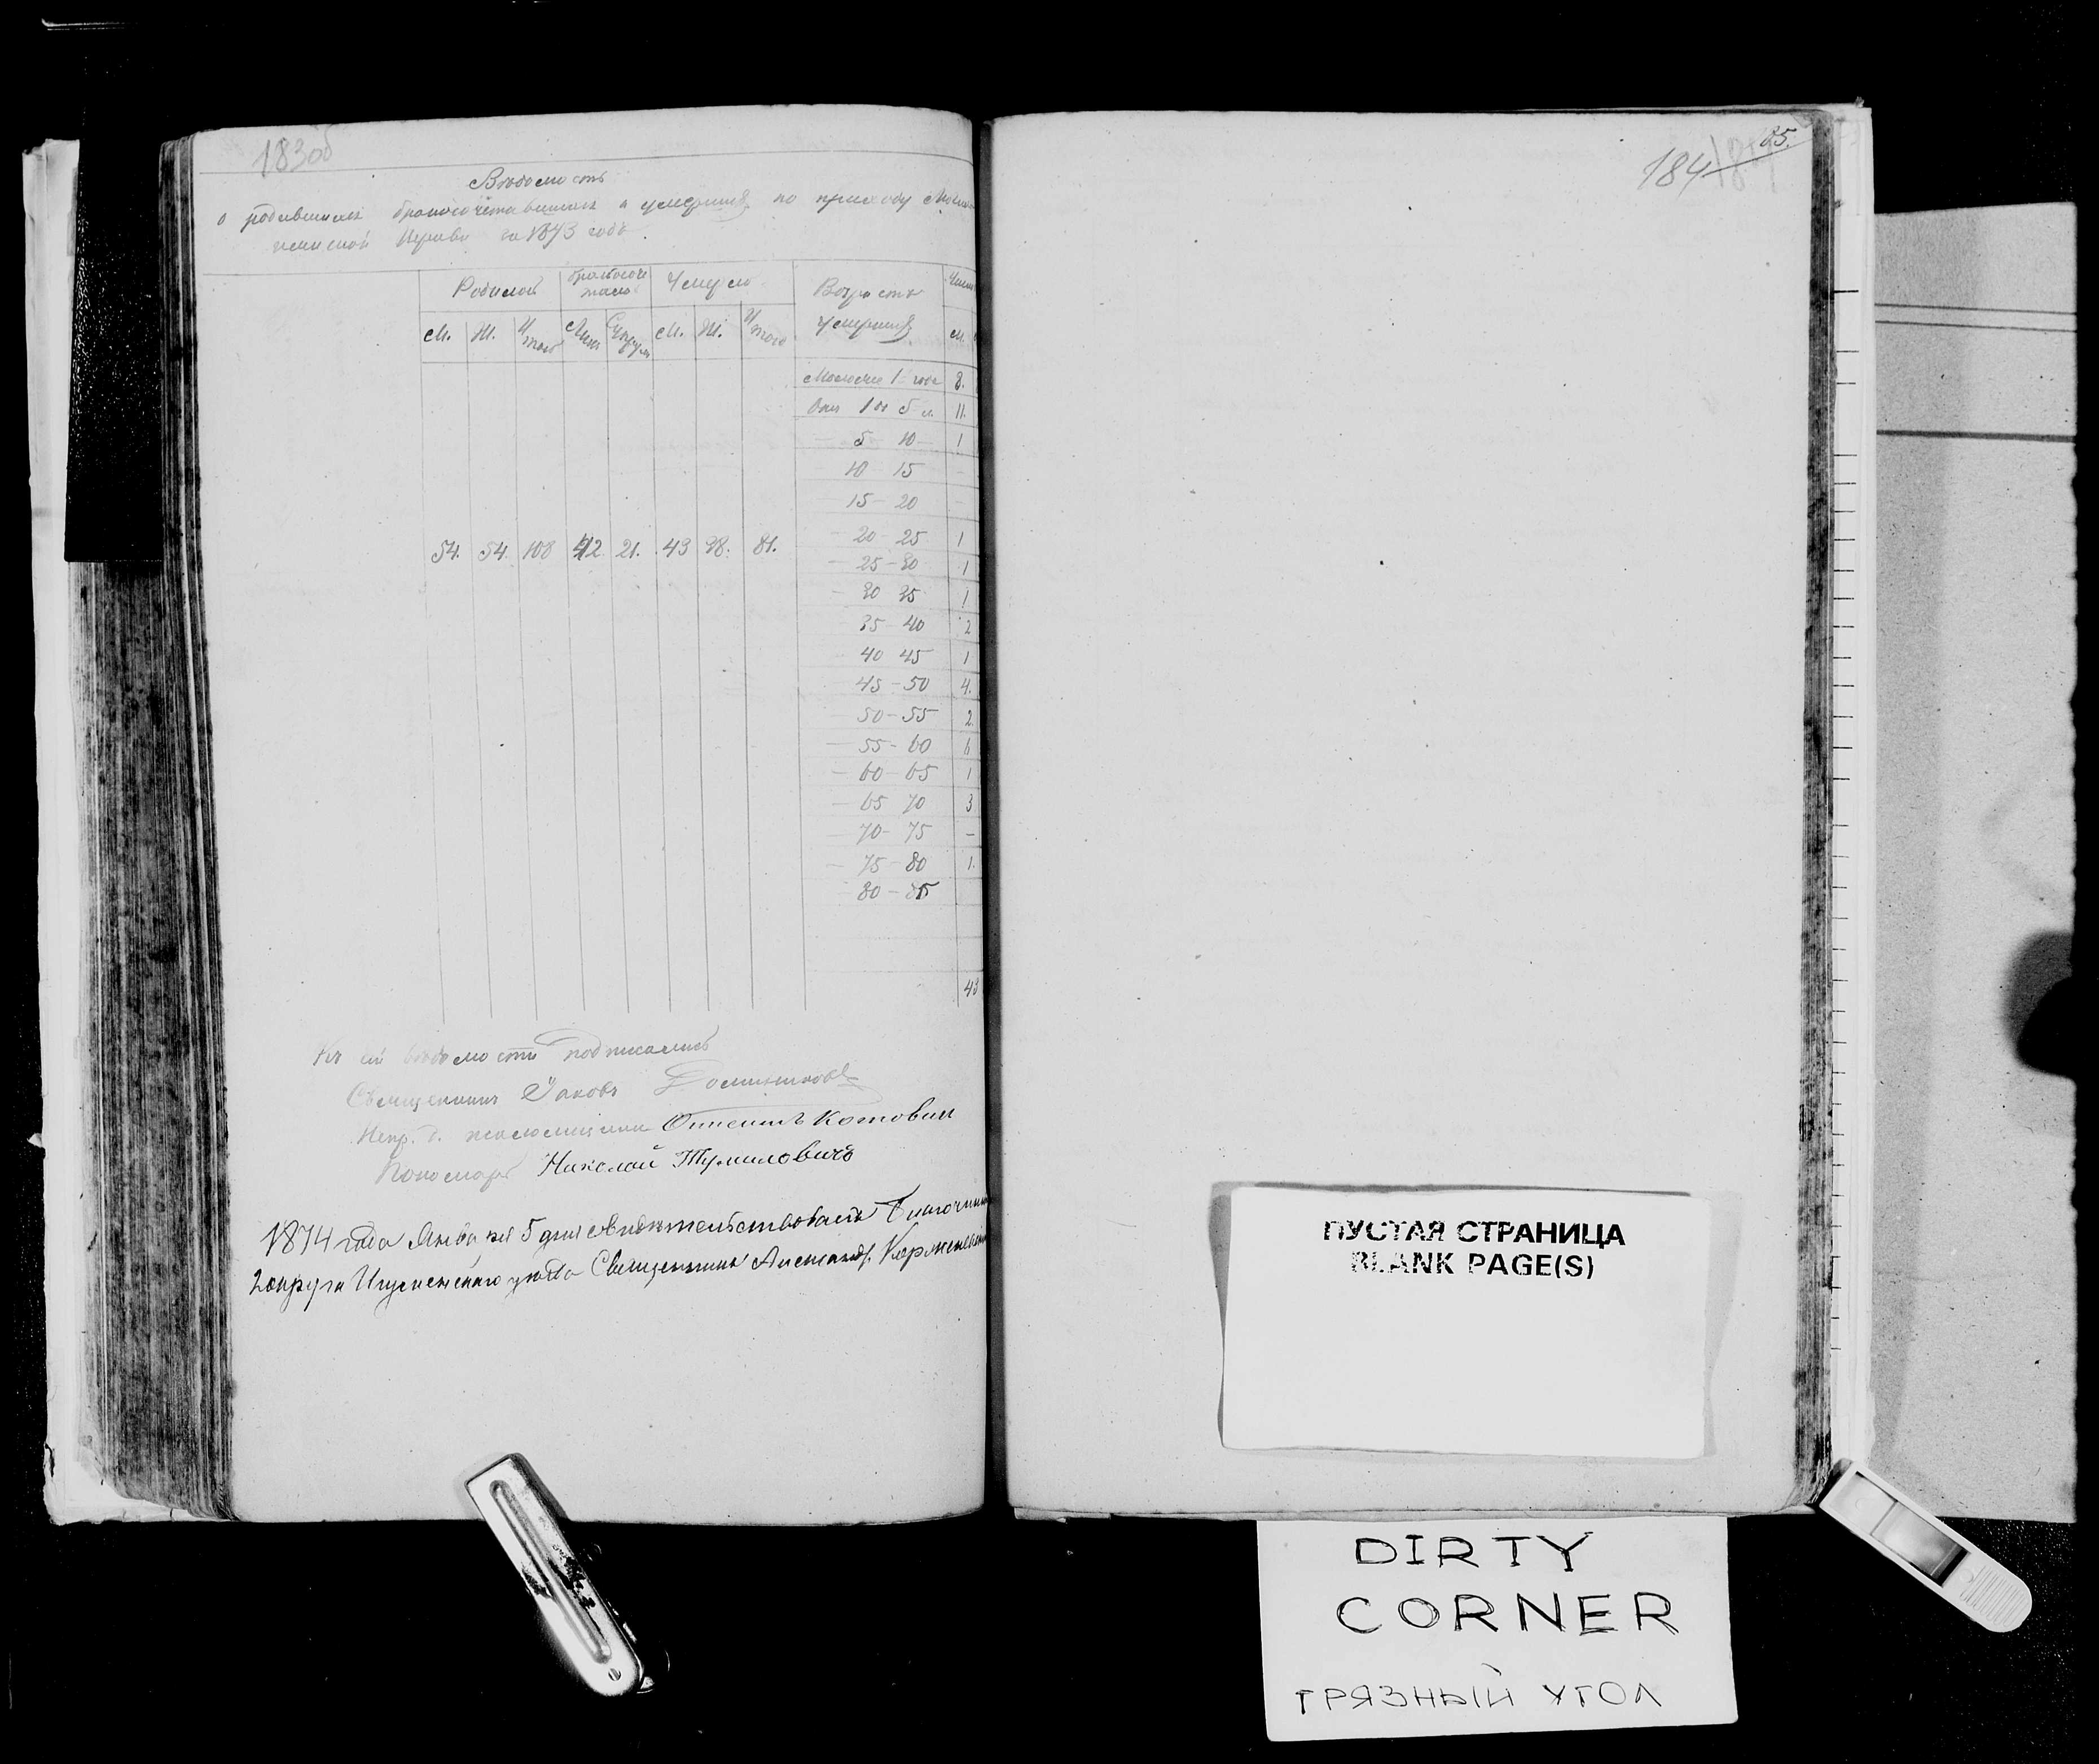 183об
Вѣдомость
о родившихся бракосочетавшихся и умершихъ по приходу
Церкви за 1873 годъ.
Родилось бракосоче талось Умерло Возрастъ умершихъ Число
М. Ж. И того Лицъ Супруж М. Ж. И того М.
Моложе 1 года 8.
Отъ 1 до 5 л. 11.
— 5 — 10 — 1
10 15 —
— 15 — 20 —
54. 54. 108 42. 21. 43 38. 81.
— 20 — 25 1
— 25 — 30 1
— 30 35 1
— 35 — 40 2
— 40 45 1
— 45 — 50 4.
— 50 — 55 2.
— 55 — 60 6
— 60 — 65 1
— 65 70 3
— 70 — 75 —
— 75 — 80 1.
— 80 — 85
43
Къ сей вѣдомости подписались
Священникъ Іаковъ
Испр. д. псаломщика Котович
Пономарь Николай Тумиловичъ
1874 года Января 5 дня свидѣтельствовалъ Благочинный
2 округа Игуменскаго уѣзда Священникъ Александр
85.
184
ПУСТАЯ СТРАНИЦА
BLANK PAGE(S)
DIRTY
CORNER
ГРЯЗНЫЙ УГОЛ